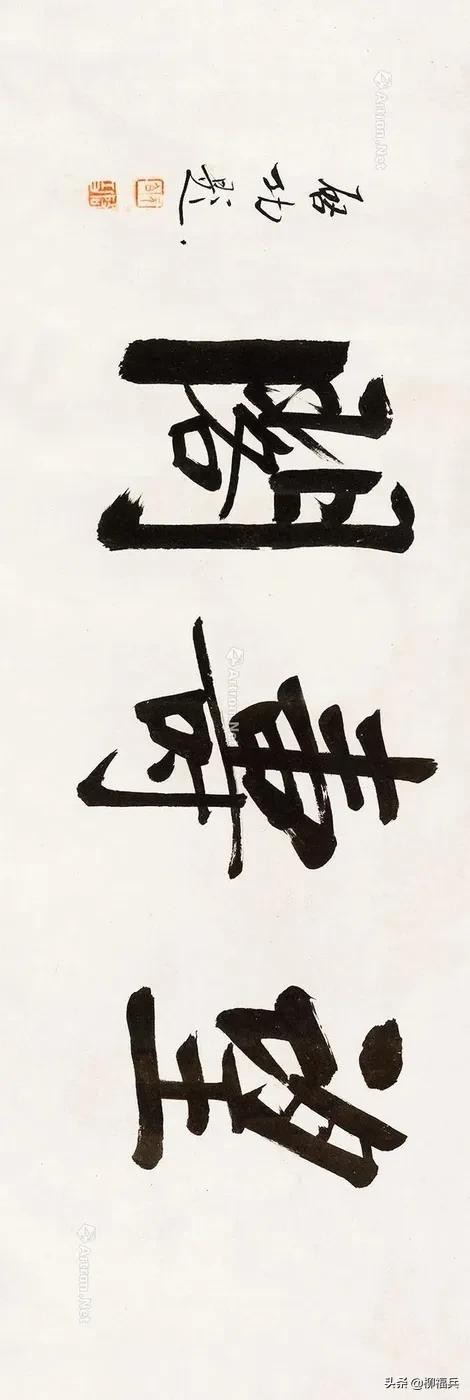 望壽閣
启功题
Artron.Net
Artron.Net
Artron.Net
头条 @柳福兵